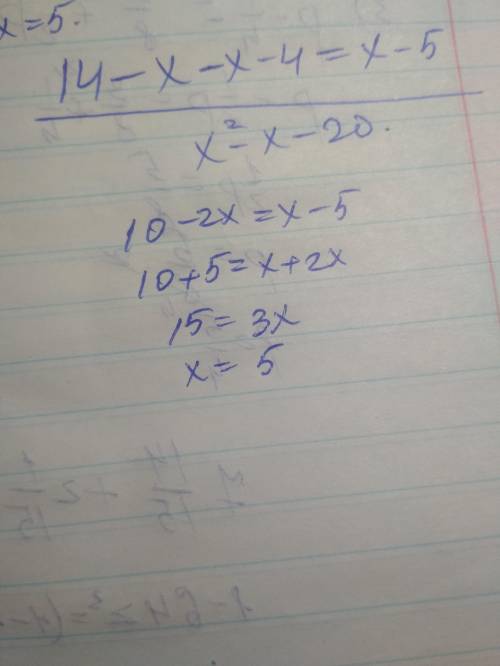 x = 5.
14 - x - x - 4 = x - 5
x² - x - 20.
10 - 2x = x - 5
10 + 5 = x + 2x
15 = 3x
x = 5